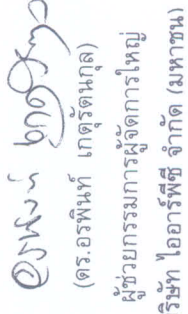 อรพินท์ เกตุรัตนกุล
(ดร.อรพินท์ เกตุรัตนกุล)
ผู้ช่วยกรรมการผู้จัดการใหญ่
บริษัท ไออาร์พีซี จำกัด (มหาชน)